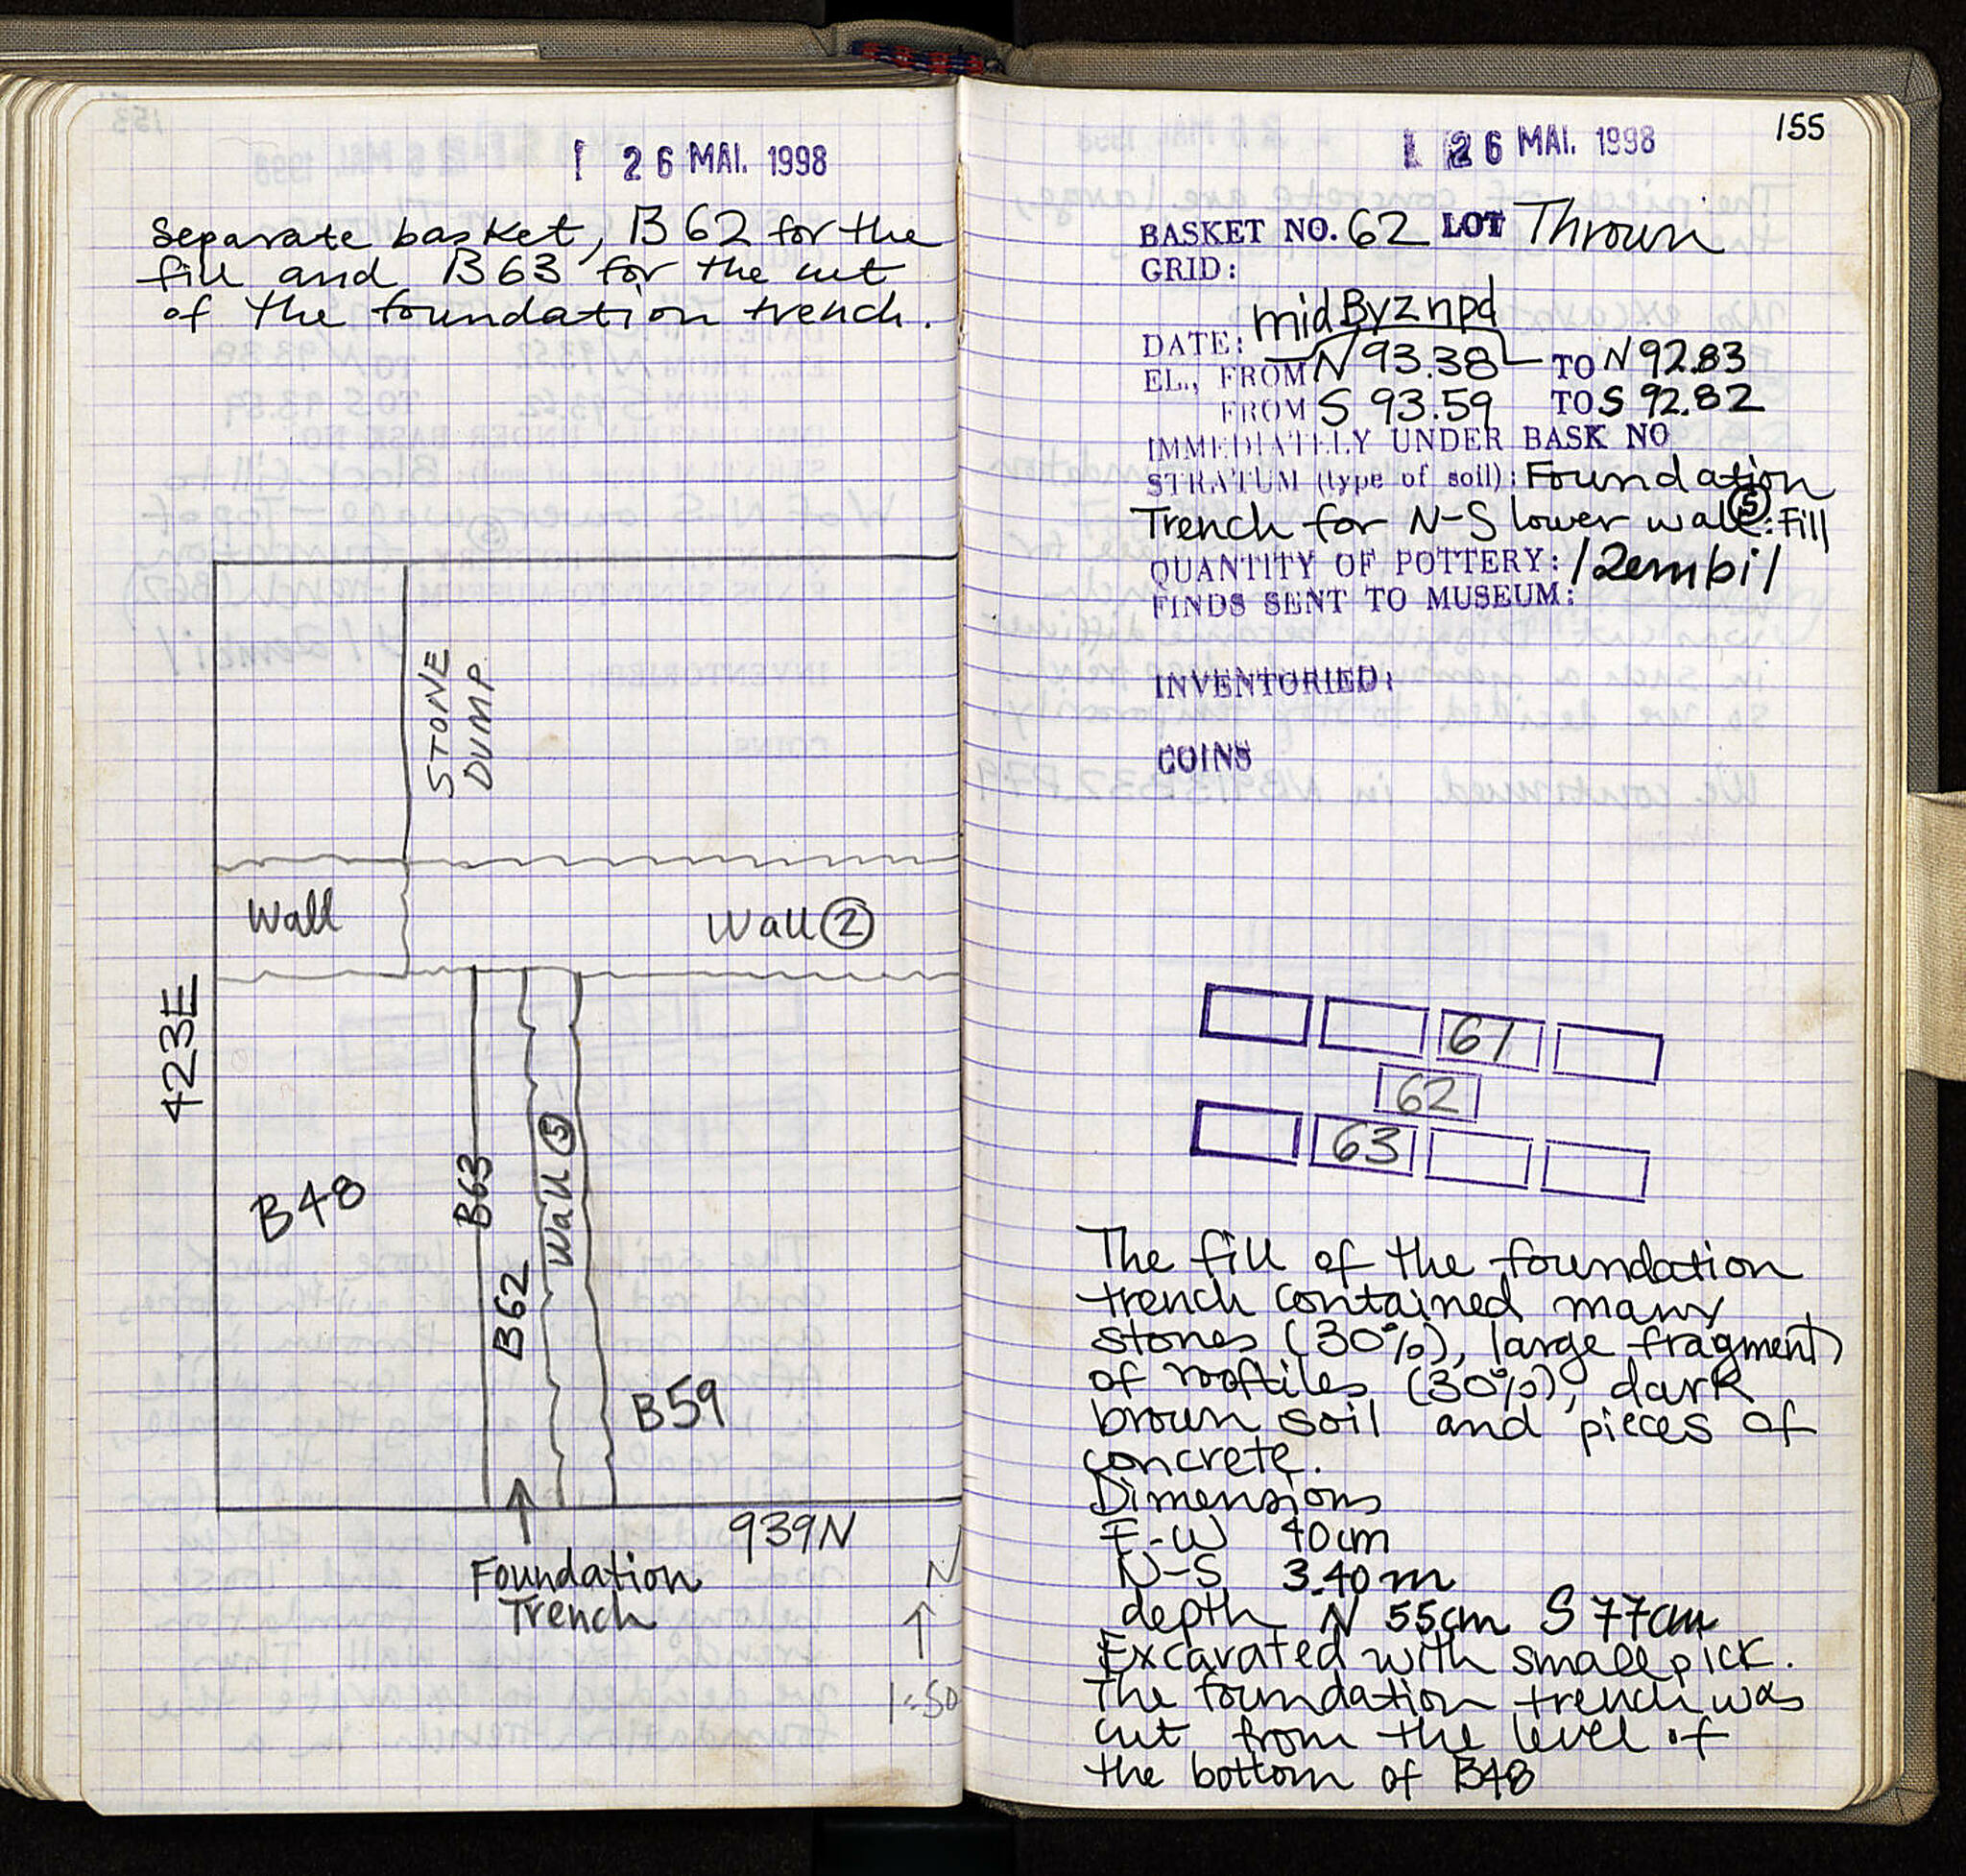 26 MAI. 1998
Separate basket, B62 for the
fill and B63 for the cut
of the foundation trench.
STONE
DUMP
Wall
Wall ②
423E
B48
B63
B62
Wall ⑤
B59
939N
Foundation
Trench
N
1:50
155
26 MAI. 1998
BASKET NO. 62 LOT Thrown
GRID:
midByznpd
DATE:
EL., FROM N 93.38 TO N 92.83
FROM S 93.59 TO S 92.82
IMMEDIATELY UNDER BASK NO
STRATUM (type of soil): Foundation
Trench for N-S lower wall ⑤: Fill
QUANTITY OF POTTERY: 1 Zembil
FINDS SENT TO MUSEUM:
INVENTORIED:
COINS
61
62
63
The fill of the foundation
trench contained many
stones (30%), large fragment
of rooftiles (30%), dark
brown soil and pieces of
concrete.
Dimensions
E-W 40cm
N-S 3.40m
depth N 55cm S 77cm
Excavated with smallpick.
The foundation trench was
cut from the level of
the bottom of B48